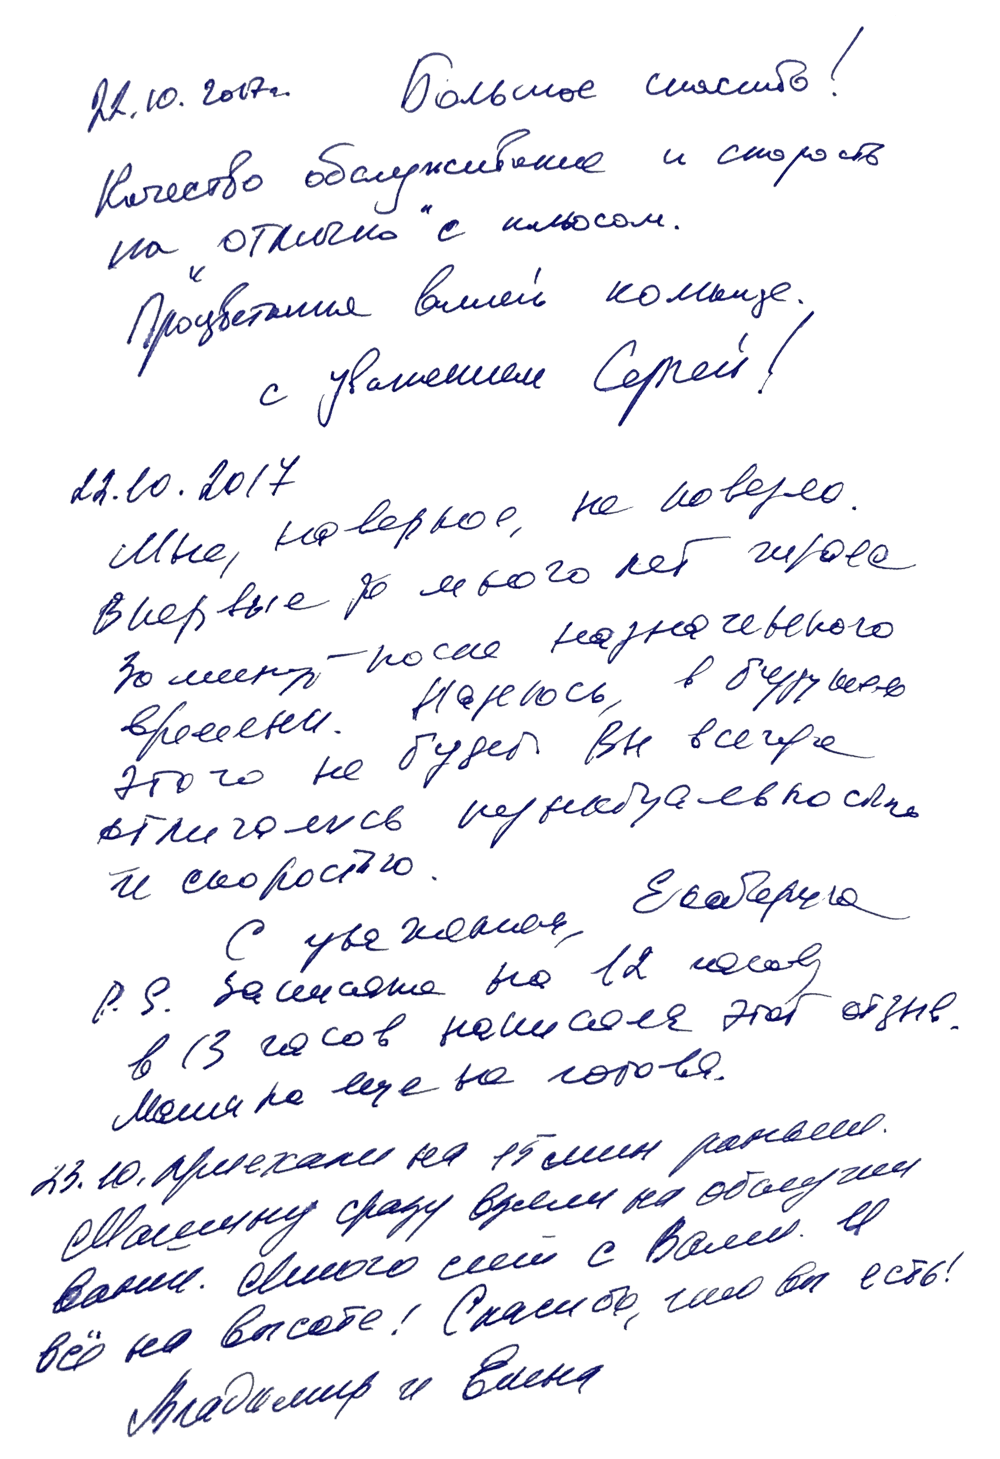 22.10.2017г. Большое спасибо!
Качество обслуживания и скорость
на "отлично" с плюсом.
Процветания вашей команде.
с уважением Сергей!
22.10.2017
Мне, наверное, не повезло.
Впервые за много лет ждала
30 минут после назначенного
времени. Надеюсь, в будущем
этого не будет. Вы всегда
отличались пунктуальностью
и скоростью.
С уважением, Екатерина
P.S. Записана на 12 часов,
в 13 часов написала этот отзыв.
Машина еще не готова.
23.10. Приехали на 15 мин раньше.
Машину сразу взяли на обслужи
вание. Много лет с Вами. И
всё на высоте! Спасибо, что вы есть!
Владимир и Елена